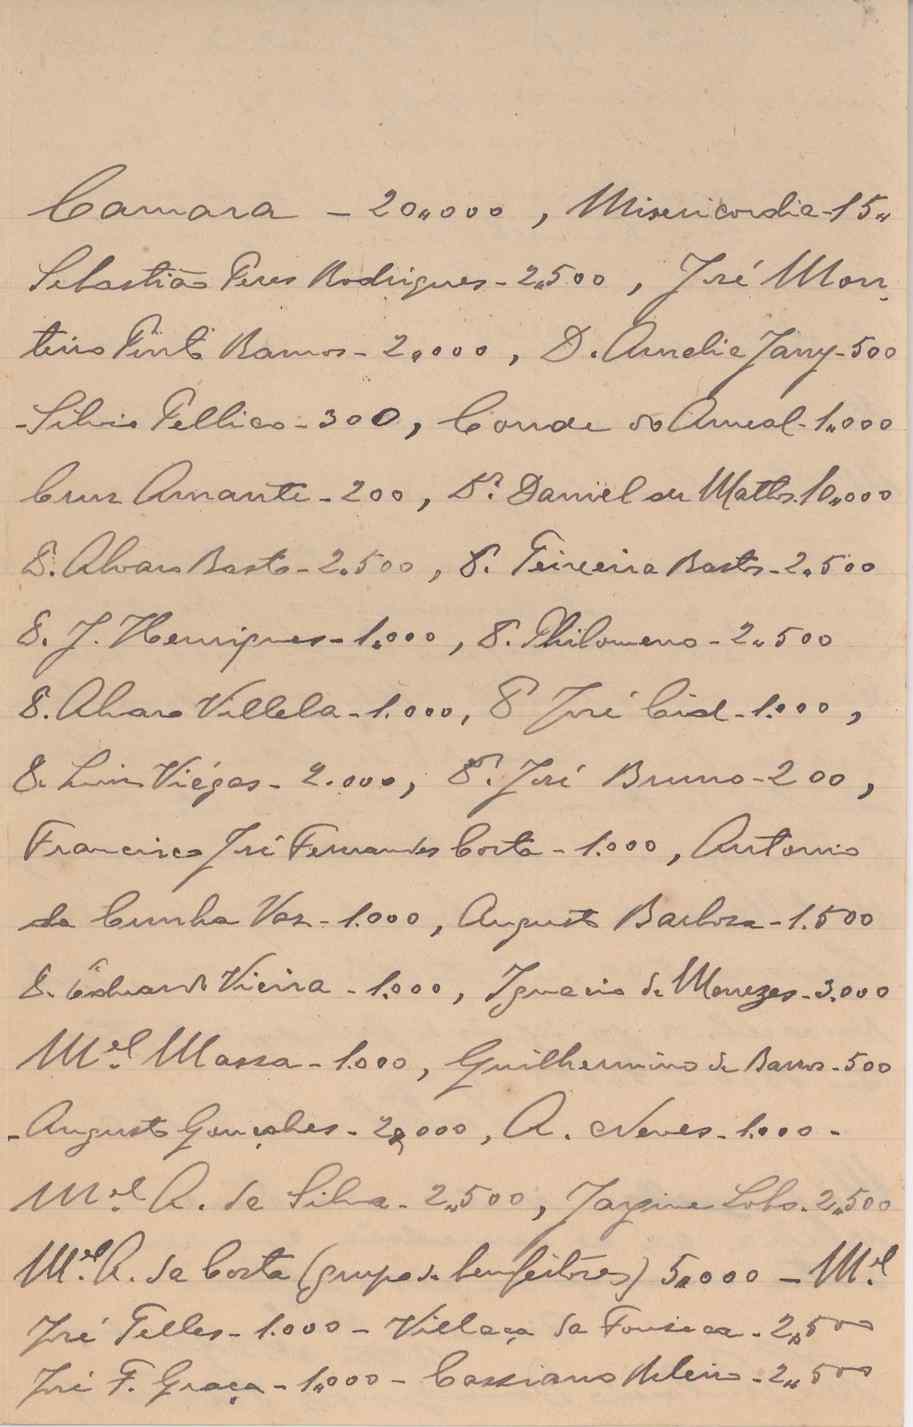 Camara - 20,,000, Misericordia - 15,,
Sebastião Peres Rodrigues - 2,,500, José Mon-
teiro Pinto Ramos - 2,000, D. Amelia Jany - 500
- Silvio Pellico - 300, Conde do Ameal - 1,,000
Cruz Amante - 200, Dr. Daniel de Mattos 10,,000
D. Alvaro Basto - 2.500, D. Teixeira Bastos - 2.500
D. J. Henriques - 1.000, D. Philomeno - 2,,500
D. Alvaro Villela - 1.000, D José Cid - 1.000,
D. Luiz Viégas - 2.000, D. José Bruno - 200,
Francisco José Fernandes Costa - 1.000, Antonio
da Cunha Vaz - 1.000, Augusto Barbosa - 1.500
D. Eduardo Vieira - 1.000, Ignacio de Menezes - 3.000
Mel. Massa - 1.000, Guilhermino de Barros - 500
- Augusto Gonçalves - 2,000, A. Neves - 1.000 -
Mel. A. da Silva - 2,,500, Lobo - 2,,500
Mel. A. da Costa (grupo de bemfeitôres) 5,,000 - Mel.
José Telles - 1.000 - Villaça da Fonseca - 2,,500
José F. Graça - 1,,000 - Cassiano Ribeiro - 2,,500